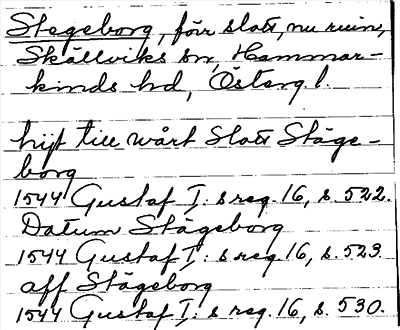 Stegeborg, förr slott, nu ruin,
Skällviks sn, Hammar-
kinds hd, Österg. l.
hijt till wårt Slott Stäge-
borg
1544 Gustaf I: s reg. 16, s. 522.
Datum Stägeborg
1544 Gustaf I: s reg. 16, s. 523.
aff Stägeborg
1544 Gustaf I: s reg. 16, s. 530.